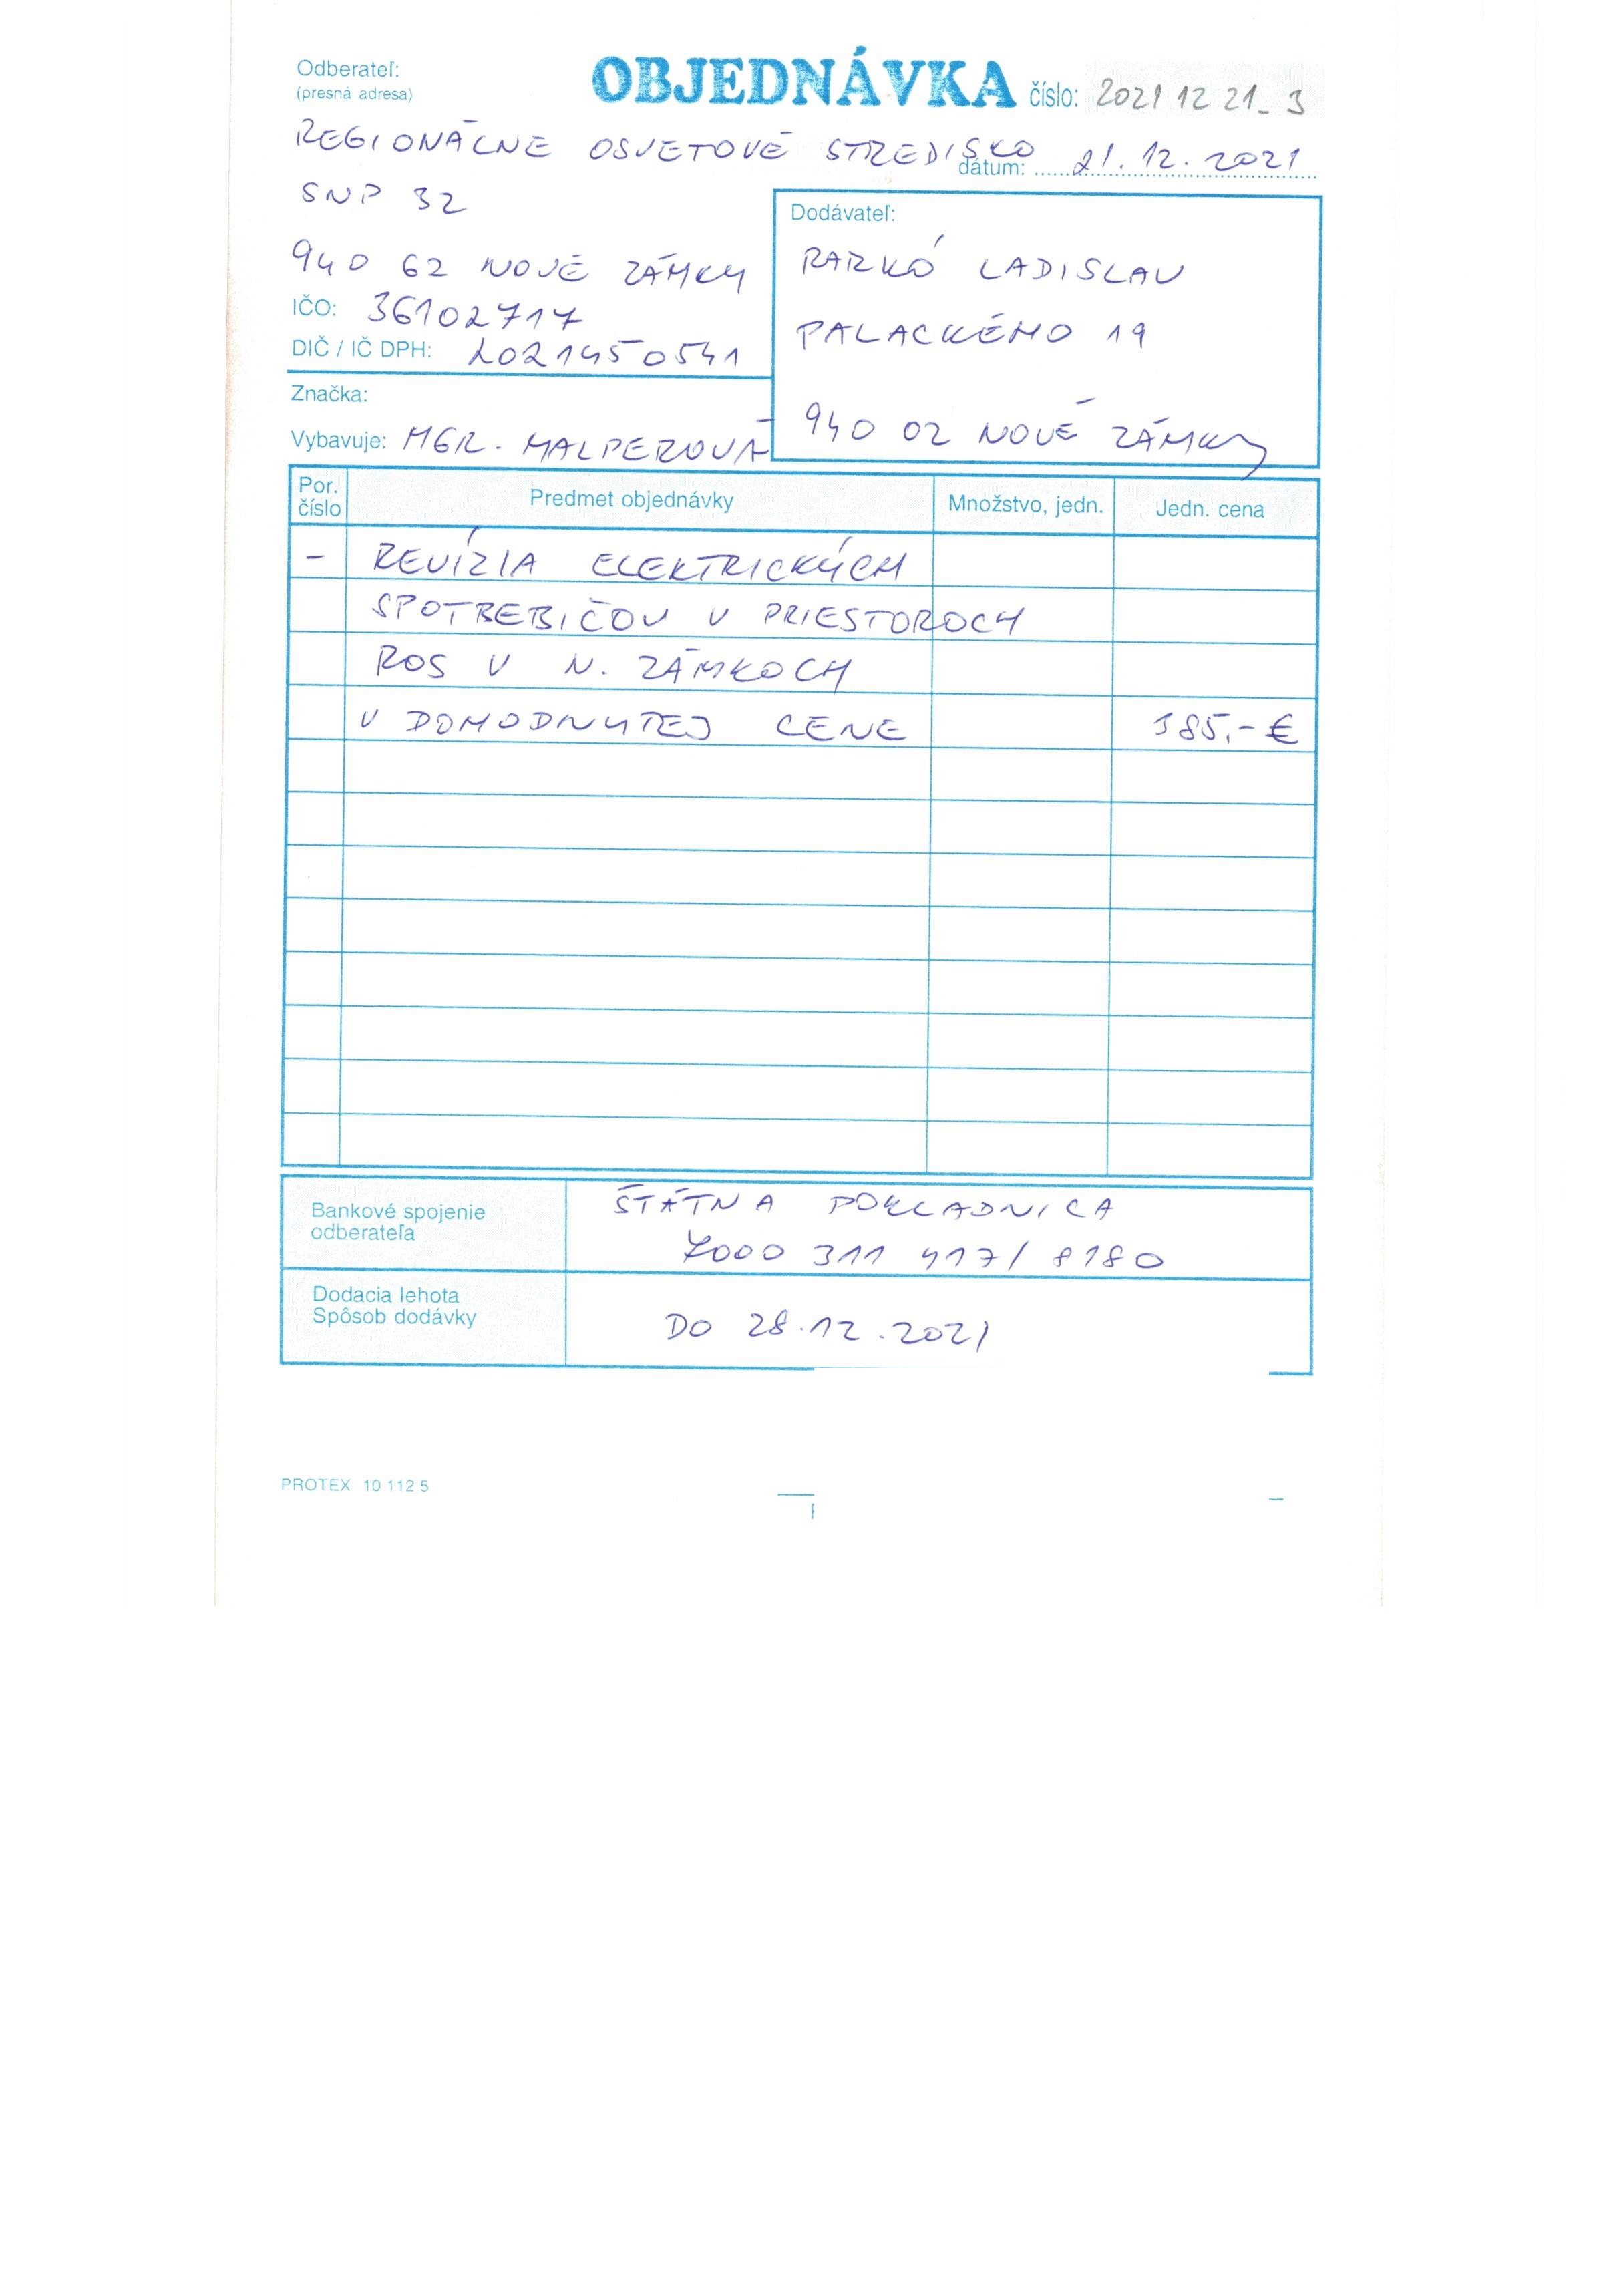 Odberateľ:
(presná adresa)
OBJEDNÁVKA číslo: 2021 12 21_3
REGIONÁLNE OSVETOVÉ STREDISKO
dátum: 21.12.2021
SNP 32
940 62 NOVÉ ZÁMKY
IČO: 36102717
DIČ / IČ DPH: 2021450541
Značka:
Vybavuje: MGR. MALPEROVÁ
Dodávateľ:
RARKÓ LADISLAV
PALACKÉHO 19
940 02 NOVÉ ZÁMKY
Por. číslo Predmet objednávky Množstvo, jedn. Jedn. cena
- REVÍZIA ELEKTRICKÝCH
SPOTREBIČOV V PRIESTOROCH
ROS V N. ZÁMKOCH
V DOHODNUTEJ CENE 385,-€
Bankové spojenie
odberateľa
ŠTÁTNA POKLADNICA
7000 311 417/8180
Dodacia lehota
Spôsob dodávky
DO 28.12.2021
PROTEX 10 112 5